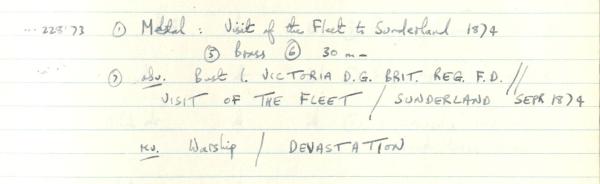 ... 228'73 ① Medal : Visit of the Fleet to Sunderland 1874
⑤ Brass ⑥ 30 mm
⑦ obv. Bust l. VICTORIA D.G. BRIT. REG. F.D. //
VISIT OF THE FLEET / SUNDERLAND SEPR 1874
rev. Warship / DEVASTATION